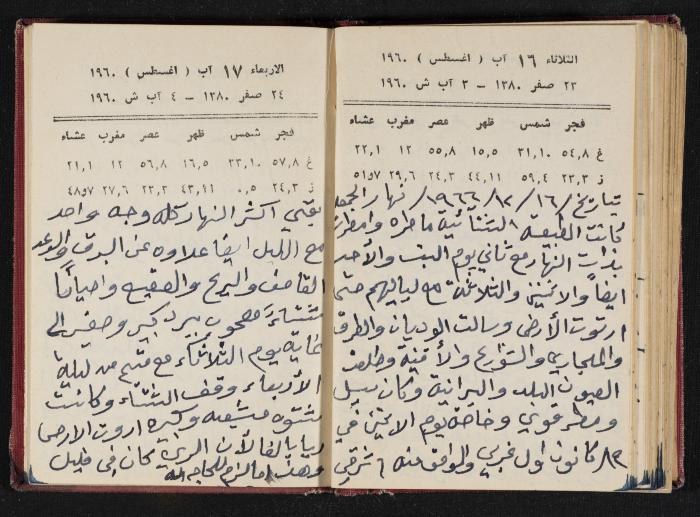 الثلاثاء ١٦ آب ( اغسطس ) ١٩٦٠
٢٣ صفر ١٣٨٠ – ٣ آب ش ١٩٦٠
فجر شمس ظهر عصر مغرب عشاء
غ ٥٤,٨ ٣١,١٠ ١٥,٥ ٥٥,٨ ١٢ ٢٢,١
ز ٢٣,٣ ٥٩,٤ ٤٤,١١ ٢٤,٣ ٢٩,٦ ٥١,٧
بتاريخ ١٩٦٦/١٢/١٦/ نهار
كانت الطبيعة ماطره
بذات النهار مع ثاني يوم السبت والأحد
ايضاً والاثنين والثلاثاء مع لياليهم حتى
ارتوت الأرض وسالت الوديان والطرق
والمجاري والشوارع والأقنية وطلعت
العيون البلد والبرانية وكان سيل
ومطر قوي وخاصة يوم الاثنين في
كانون اول غربي والوافق منه ٦ شرقي
الاربعاء ١٧ آب ( اغسطس ) ١٩٦٠
٢٤ صفر ١٣٨٠ – ٤ آب ش ١٩٦٠
فجر شمس ظهر عصر مغرب عشاء
غ ٥٧,٨ ٣٣,١٠ ١٦,٥ ٥٦,٨ ١٢ ٢١,١
ز ٢٤,٣ ٠,٥ ٤٣,١١ ٢٣,٣ ٢٧,٦ ٤٨,٧
بقي اكثر النهار كله وجه واحد
مع الليل ايضا علاوه عن البرق والرعد
القاصف والريح والصقيع واحياناً
شتاء مصحوب ببرد كبير وصغير الى
غاية يوم الثلاثاء مع من ليلة
الأربعاء وقف الشتاء وكانت
شتوه مشبعه وكبيره اروت الارض
ريا بالغا لأن الري كان في قليل
وهذا ما لزم للحاجه الله